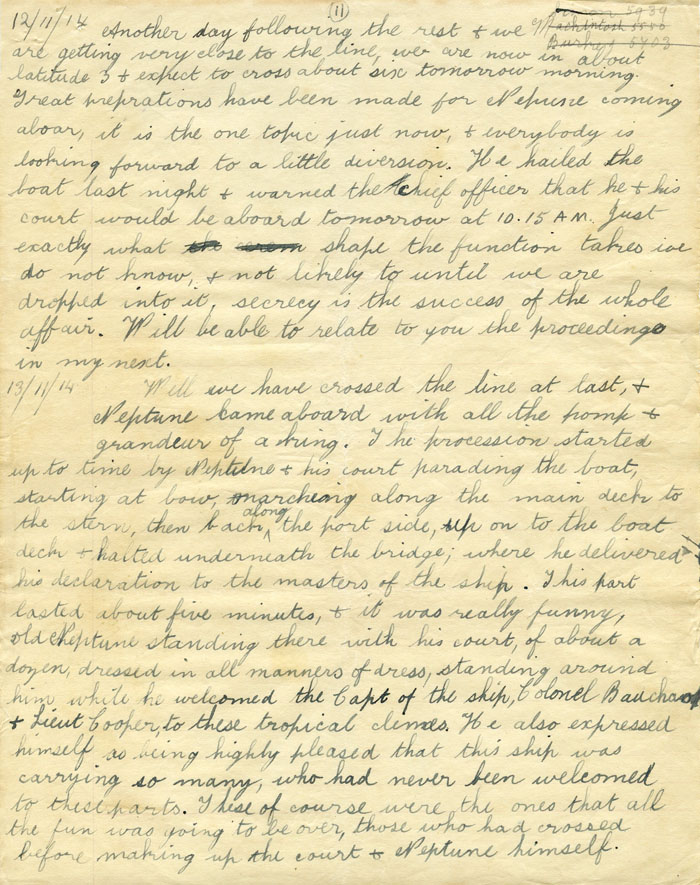 (11)
5939
Mackintosh 5550
5403
12/11/14 Another day following the rest & we
are getting very close to the line, we are now in about
latitude 3 & expect to cross about six tomorrow morning.
Great preprations have been made for Nepune coming
aboar, it is the one topic just now, & everybody is
looking forward to a little diversion. He hailed the
boat last night & warned the chief officer that he & his
court would be aboard tomorrow at 10.15 AM. Just
exactly what the shape the function takes we
do not know, & not likely to until we are
dropped into it, secrecy is the success of the whole
affair. Will be able to relate to you the proceedings
in my next.
13/11/14 Well we have crossed the line at last, &
Neptune came aboard with all the pomp &
grandeur of a king. The procession started
up to time by Neptune & his court parading the boat,
starting at bow, marching along the main deck to
the stern, then back along the port side, up on to the boat
deck & halted underneath the bridge; where he delivered
his declaration to the masters of the ship. This part
lasted about five minutes, & it was really funny,
old Neptune standing there with his court, of about a
dozen, dressed in all manners of dress, standing around
him while he welcomed the Capt of the ship, Colonel
& Lieut Cooper, to these tropical climes. He also expressed
himself as being highly pleased that this ship was
carrying so many, who had never been welcomed
to these parts. These of course were the ones that all
the fun was going to be over, those who had crossed
before making up the court & Neptune himself.